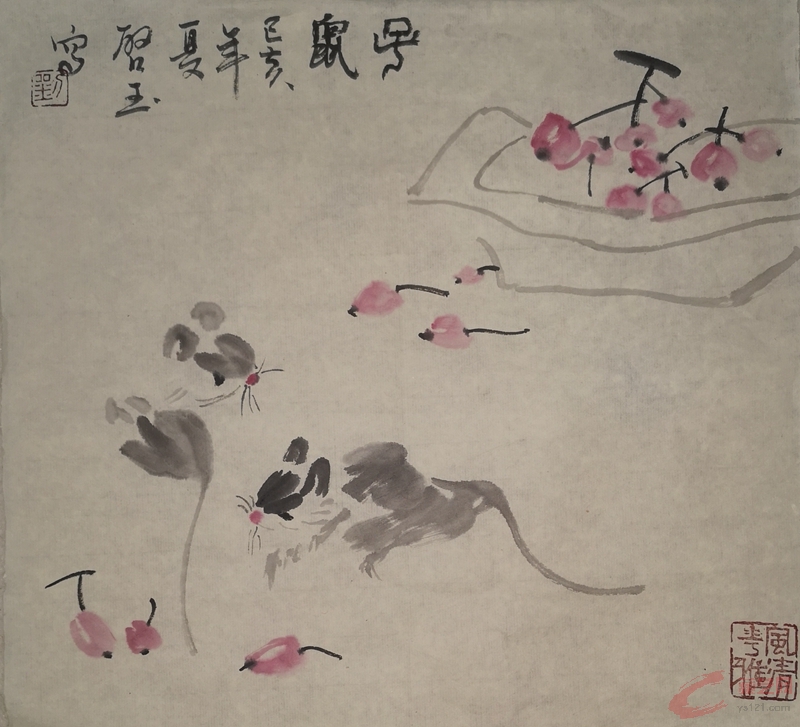 鼠
己亥
年
夏
啓玉
写
風清
雅
ys121.com